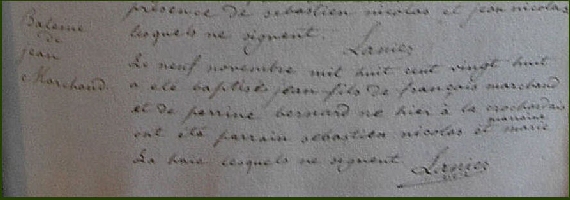 présence de sebastien nicolas et jean nicolas
lesquels ne signent.
Laniez
Bateme
de
jean
Marchand
Le neuf novembre mil huit cent vingt huit
a ete baptisé jean fils de françois marchand
et de perrine bernard ne hier à la crochardais
ont été parrain sebastien nicolas et marraine marie
La haie lesquels ne signent
Laniez